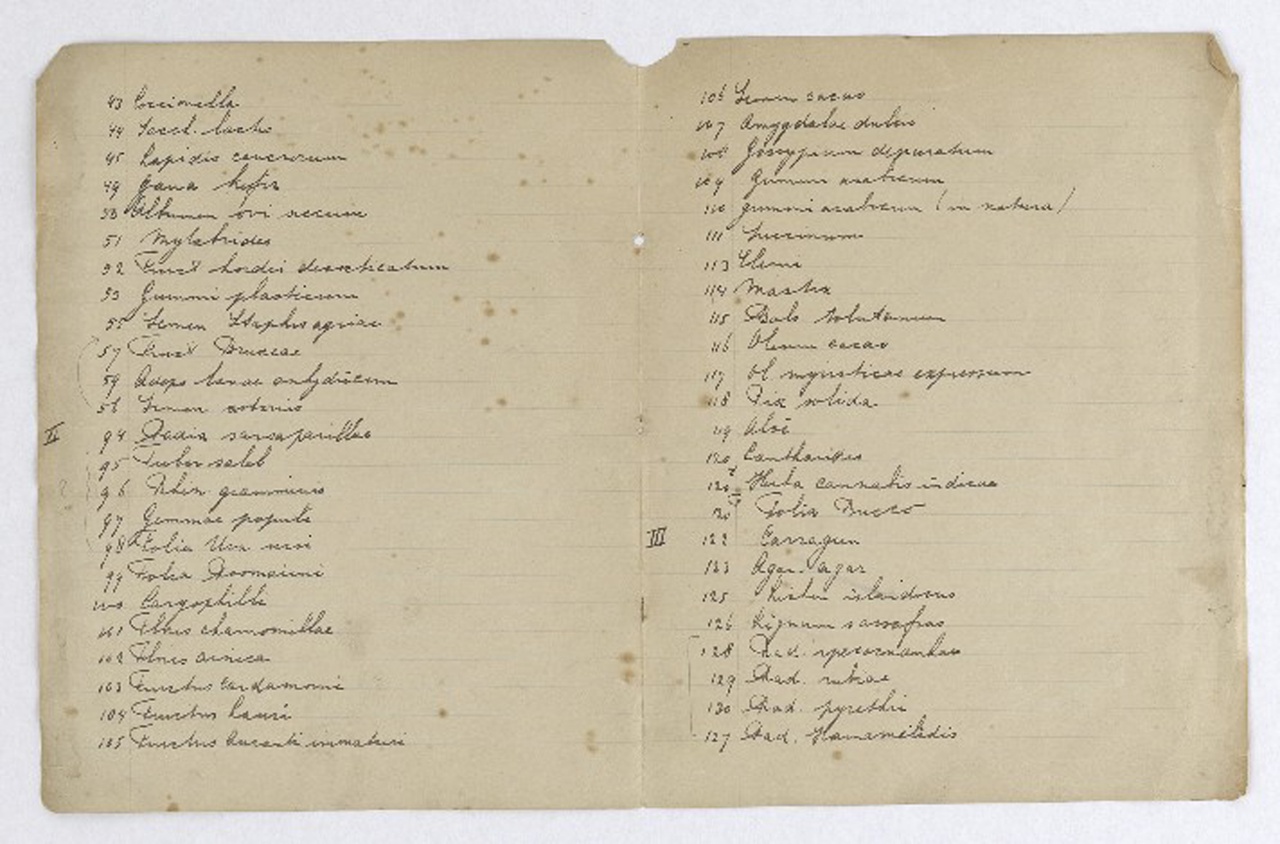 43 Coccionella
44 Sacch. lactis
45 Lapidis cancrorum
49 Grana kefir
50 Albumen ovi siccum
51 Mylabrides
52 Fruct hordei decorticatum
53 Gummi plasticum
55 Semen Staphisagriae
57 Fruct Bruceae
59 Adeps lanae anhydricum
56 Semen
II 94 Radix sarsaparillae
95 Tuber saleb
96 Rhiz. graminis
97 Gemmae populi
98 Folia Uva ursi
99 Folia
100 Caryophilli
101 Flores chamomillae
102 Flores arnica
103 Fructus Cardamomi
104 Fructus Lauri
105 Fructus Auranti immaturi
106 Semen cacao
107 Amygdalae dulcis
108 Gossypium depuratum
109 Gummi arabicum
110 gummi arabicum (in natura)
111 Succinum
113 Elemi
114 Mastix
115 Bals tolutanum
116 Oleum cacao
117 Ol. myristicae expressum
118 Pix solida
119 Aloë
120 Cantharides
121 Herba cannabis indicae
121 Folia Bucco
III 122 Carragen
123 Agar-agar
125 Lichen islandicus
126 Lignum sassafras
128 Rad. ipecacuanhae
129 Rad. rubiae
130 Rad. pyrethri
127 Rad. Hamamelidis